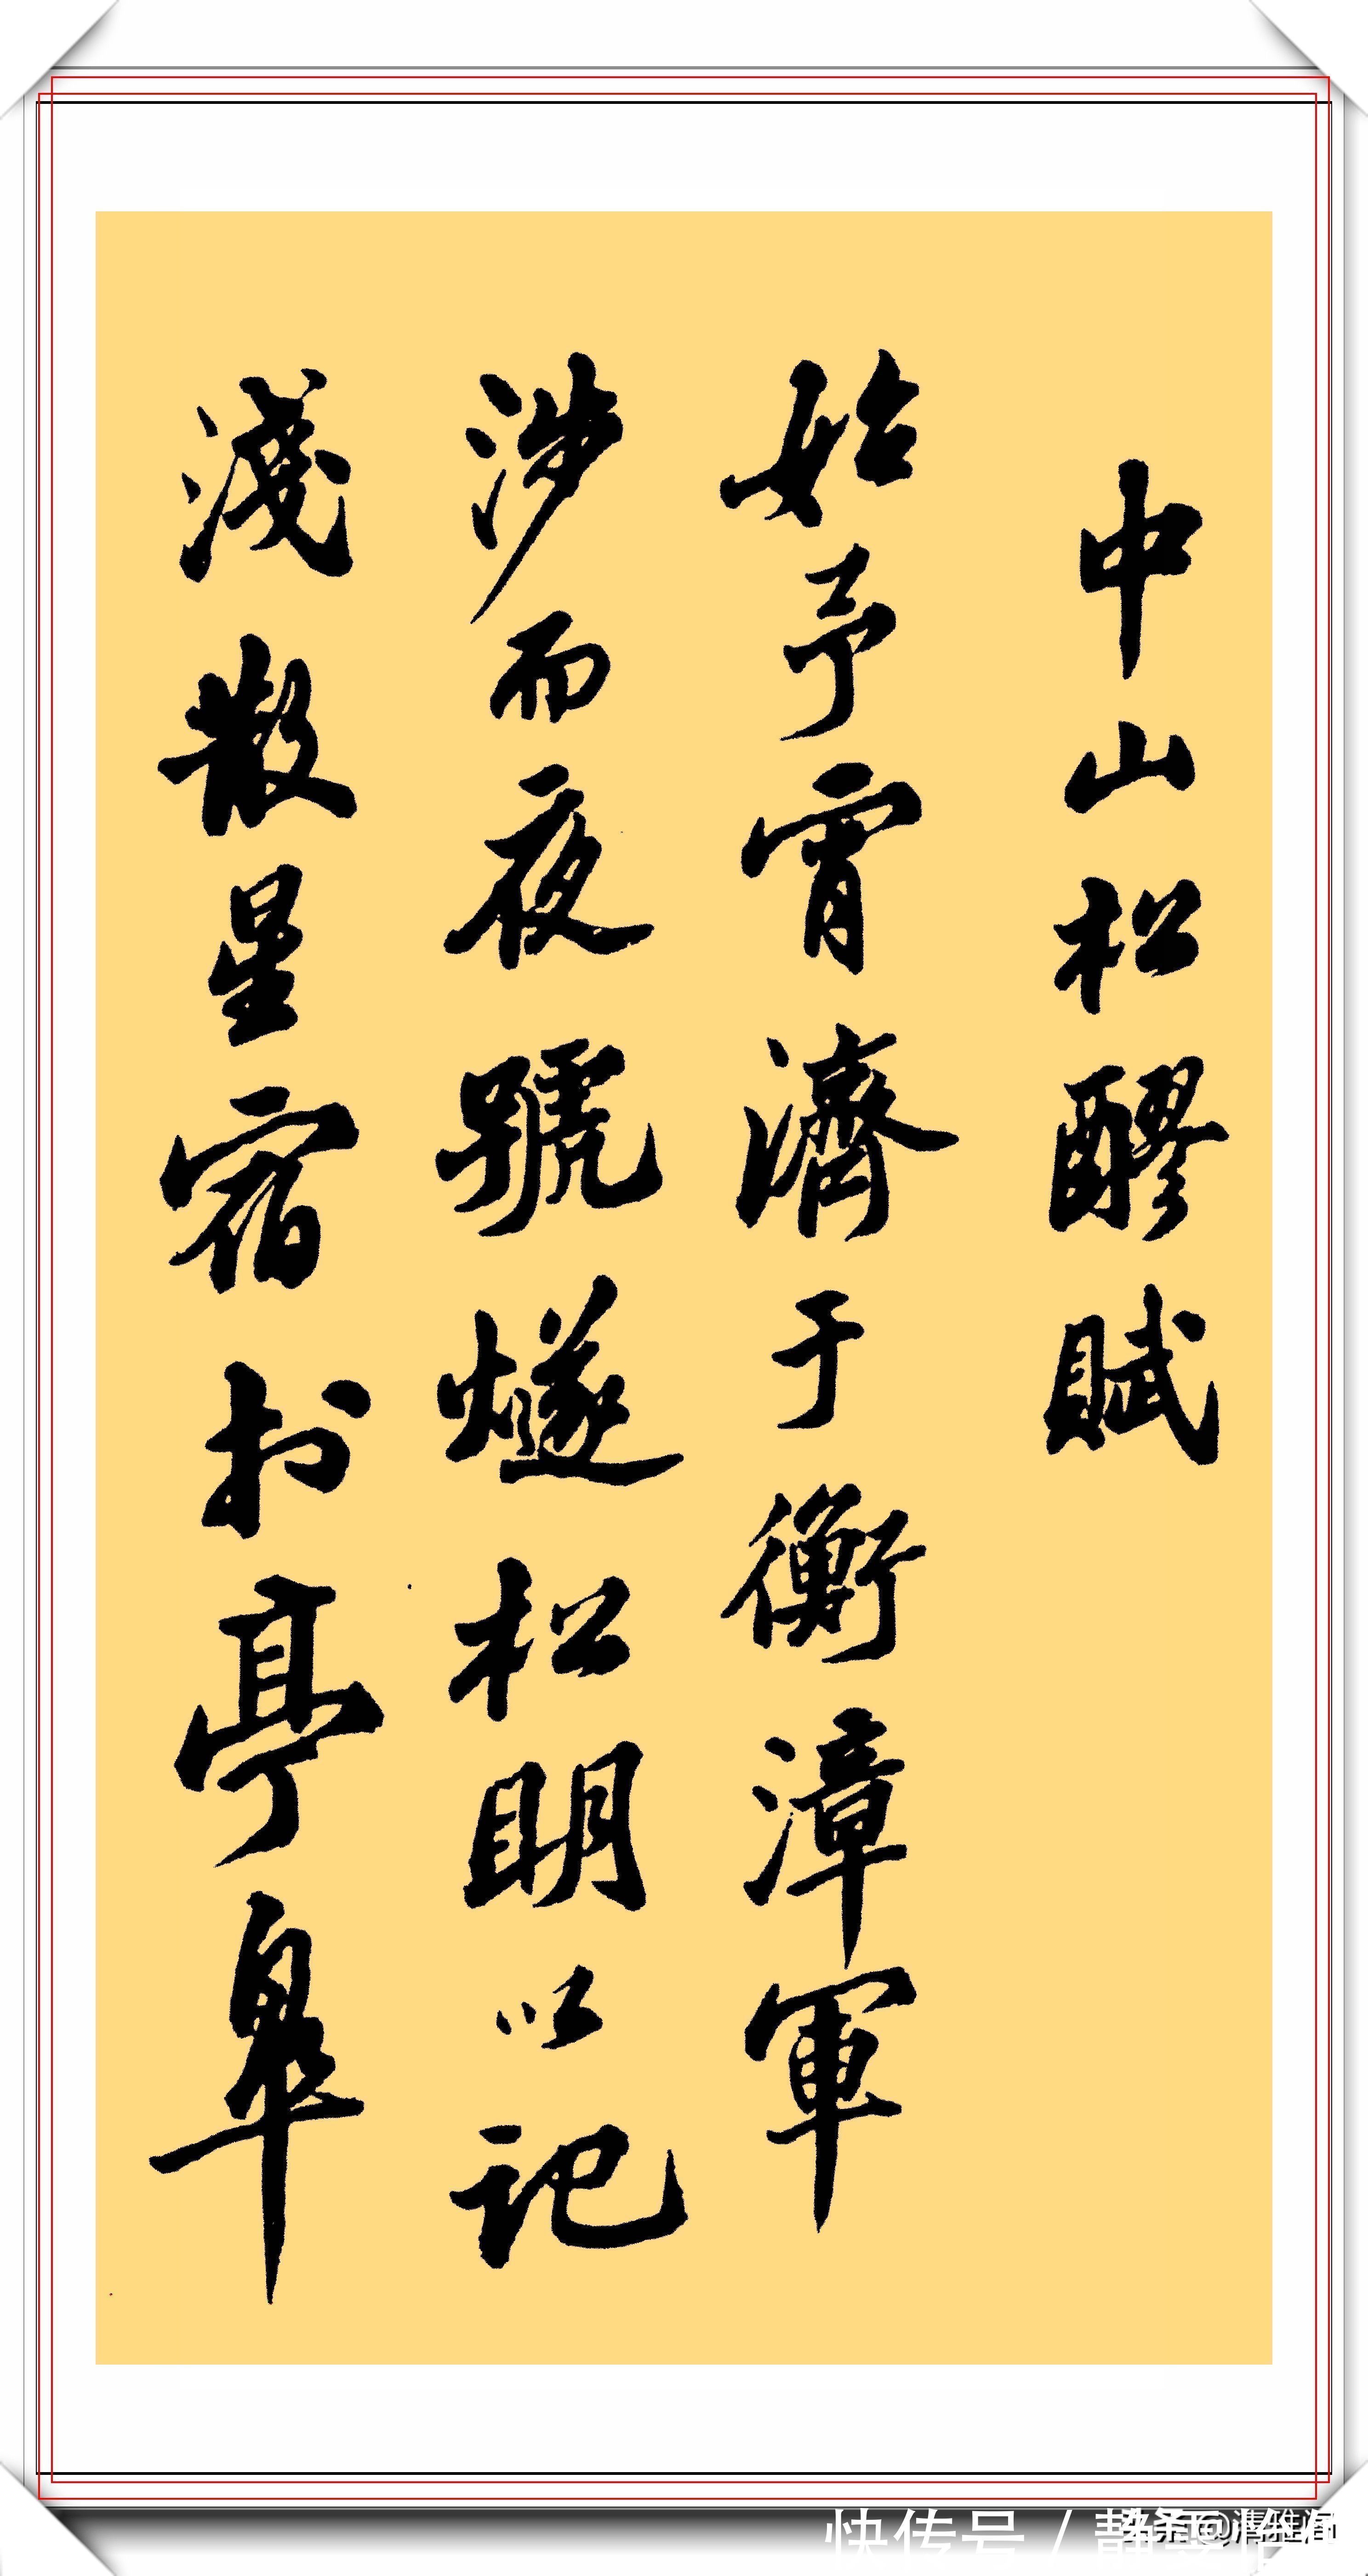 中山松醪賦
始予宵濟于衡漳軍
涉而夜號燧松明以記
淺散星宿於亭皐
快传号 /